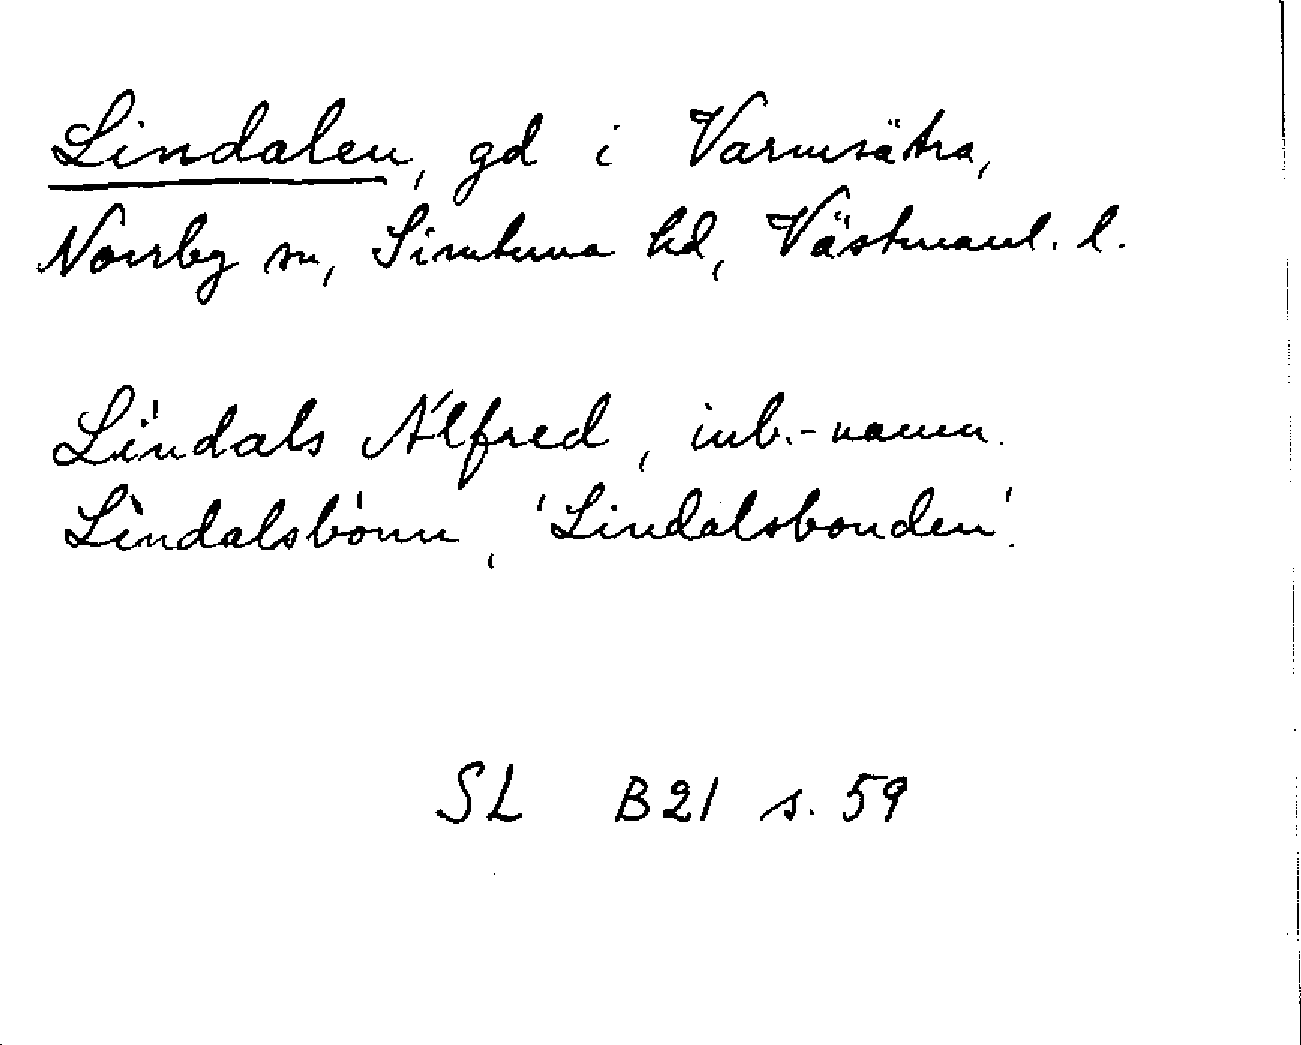 Lindalen, gd i Varmsätra,
Norrby sn, Simtuna hd, Västmanl. l.
Líndals Álfred, inb.-namn.
Lìndalsbónn, 'Lindalsbonden'.
SL B21 s. 59